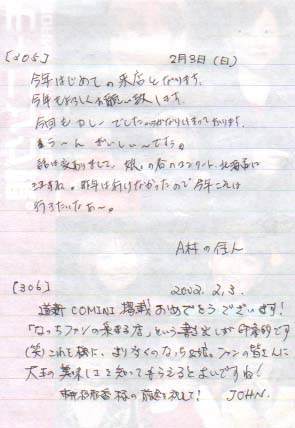 [305] 2月3日(日)
今年はじめての来店となります。
今年もよろしくお願い致します。
今回もカレーでした。
う〜ん おいしい〜ですぅ。
話は変わりまして、娘。の春のコンサート、北海道に
きますね。昨年は行けなかったので今年こそは
行きたいなぁ〜。
A村の住人
[306] 2002.2.3.
道新COMINI掲載!おめでとうございます!
「なっちファンの集まる店」という書き出しが印象的です
(笑)これを機に、より多くのなっち&娘。ファンの皆さんに
大王の美味しさを知ってもらえるとよいですね!
様の前途を祝して! JOHN.